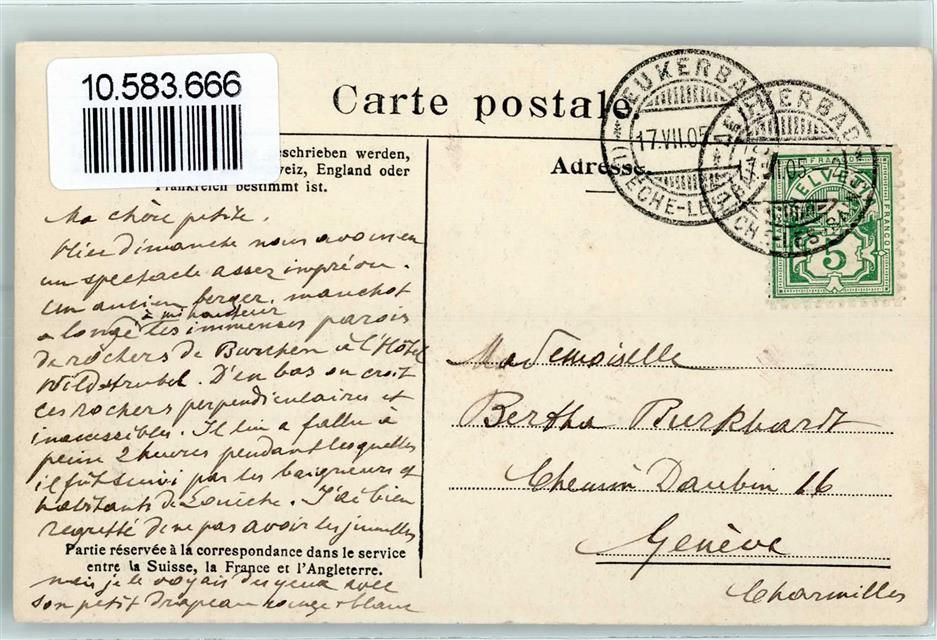 10.583.666
Carte postale.
eschrieben werden,
weiz, England oder
Frankreich bestimmt ist.
Adresse.
LEUKERBAD
17.VII.05
LOÈCHE-LES
LEUKERBAD
17.VII.05
LOÈCHE-LES-BAINS
FRANCO
HELVETIA
5
FRANCO
Ma chère petite.
Hier dimanche nous avons eu
un spectacle assez imprévu.
Un ancien berger, manchot
à mi hauteur
a longé les immenses parois
de rochers de Burchen à l'Hôtel
Wildstrubel. D'en bas on croit
ces rochers perpendiculaires et
inaccessibles. Il lui a fallu à
peine 2 heures pendant lesquelles
il fût suivi par les baigneurs et
habitants de Louèche. J'ai bien
regretté de ne pas avoir les jumelles
Partie réservée à la correspondance dans le service
entre la Suisse, la France et l'Angleterre.
mais je le voyais des yeux avec
son petit drapeau rouge & blanc
Mademoiselle
Bertha Burkhardt
Chemin Daubin 16
Genève
Charmilles